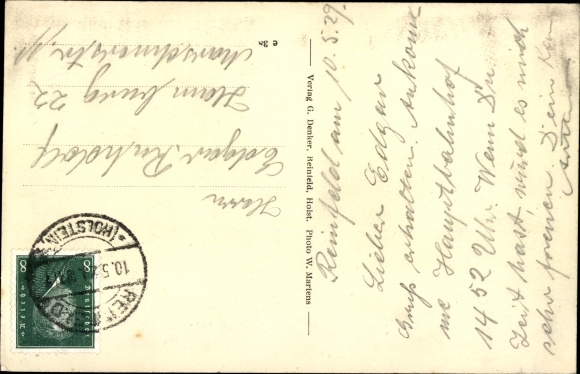 Reinfeld am 10.5.29.
Lieber Edgar
Gruß erhalten. Ankomme
Hauptbahnhof
14 52 Uhr. Wenn Du
Zeit hast würd es mich
sehr freuen. Dein
Verlag G. Denker, Reinfeld, Holst. Photo W. Martens
e 38
Herrn
Edgar Rudolf
Hamburg 22
REINFELD
(HOLSTEIN)
10.5.29
Deutsches Reich
8
8